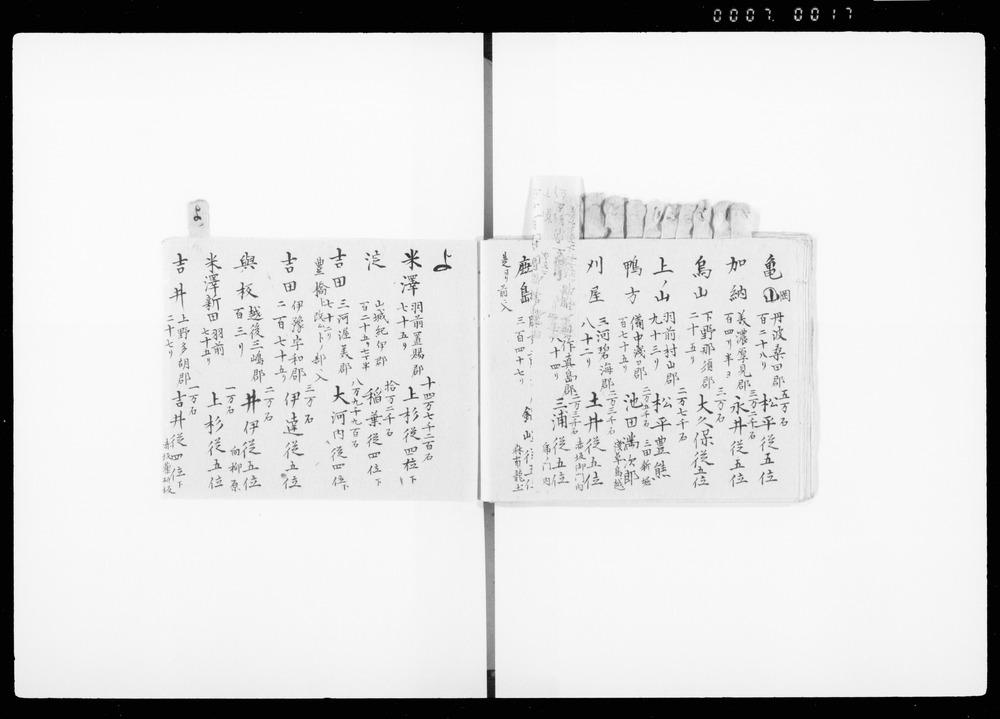 0007 0017
亀山 岡 丹波桑田郡 百二十八り 五万石 松平従五位
加納 美濃厚見郡 百四り半ヨ 三万二千石 永井従五位
烏山 下野那須郡 二十五り 三万石 大久保従五位
上ノ山 羽前村山郡 九十三り 二万七千石 松平豊熊
鴨方 備中浅口郡 百七十五り 二万五千石 池田満次郎 三田新堀
刈屋 三河碧海郡 八十二り 二万三千石 土井従五位 赤坂御門内
作真島郡 八十四り 二万三千石 三浦従五位
鹿島 三百四十七り
是ヨリ前ヘ入
よ
米澤 羽前置賜郡 七十五り 十四万七千二百石 上杉従四位下
淀 山城紀伊郡 百二十五り七丁半 拾万二千石 稲葉従四位下
吉田 三河渥美郡 七十二り 八万九千九百石 大河内従四位下
豊橋ト改ム ト部ヘ入
吉田 伊豫宇和郡 二百七十五り 三万石 伊達従五位
與板 越後三嶋郡 百三り 二万石 井伊従五位 向柳原
米澤新田 羽前 七十五り 一万石 上杉従五位
吉井 上野多胡郡 二十七り 一万石 吉井従四位下
よ